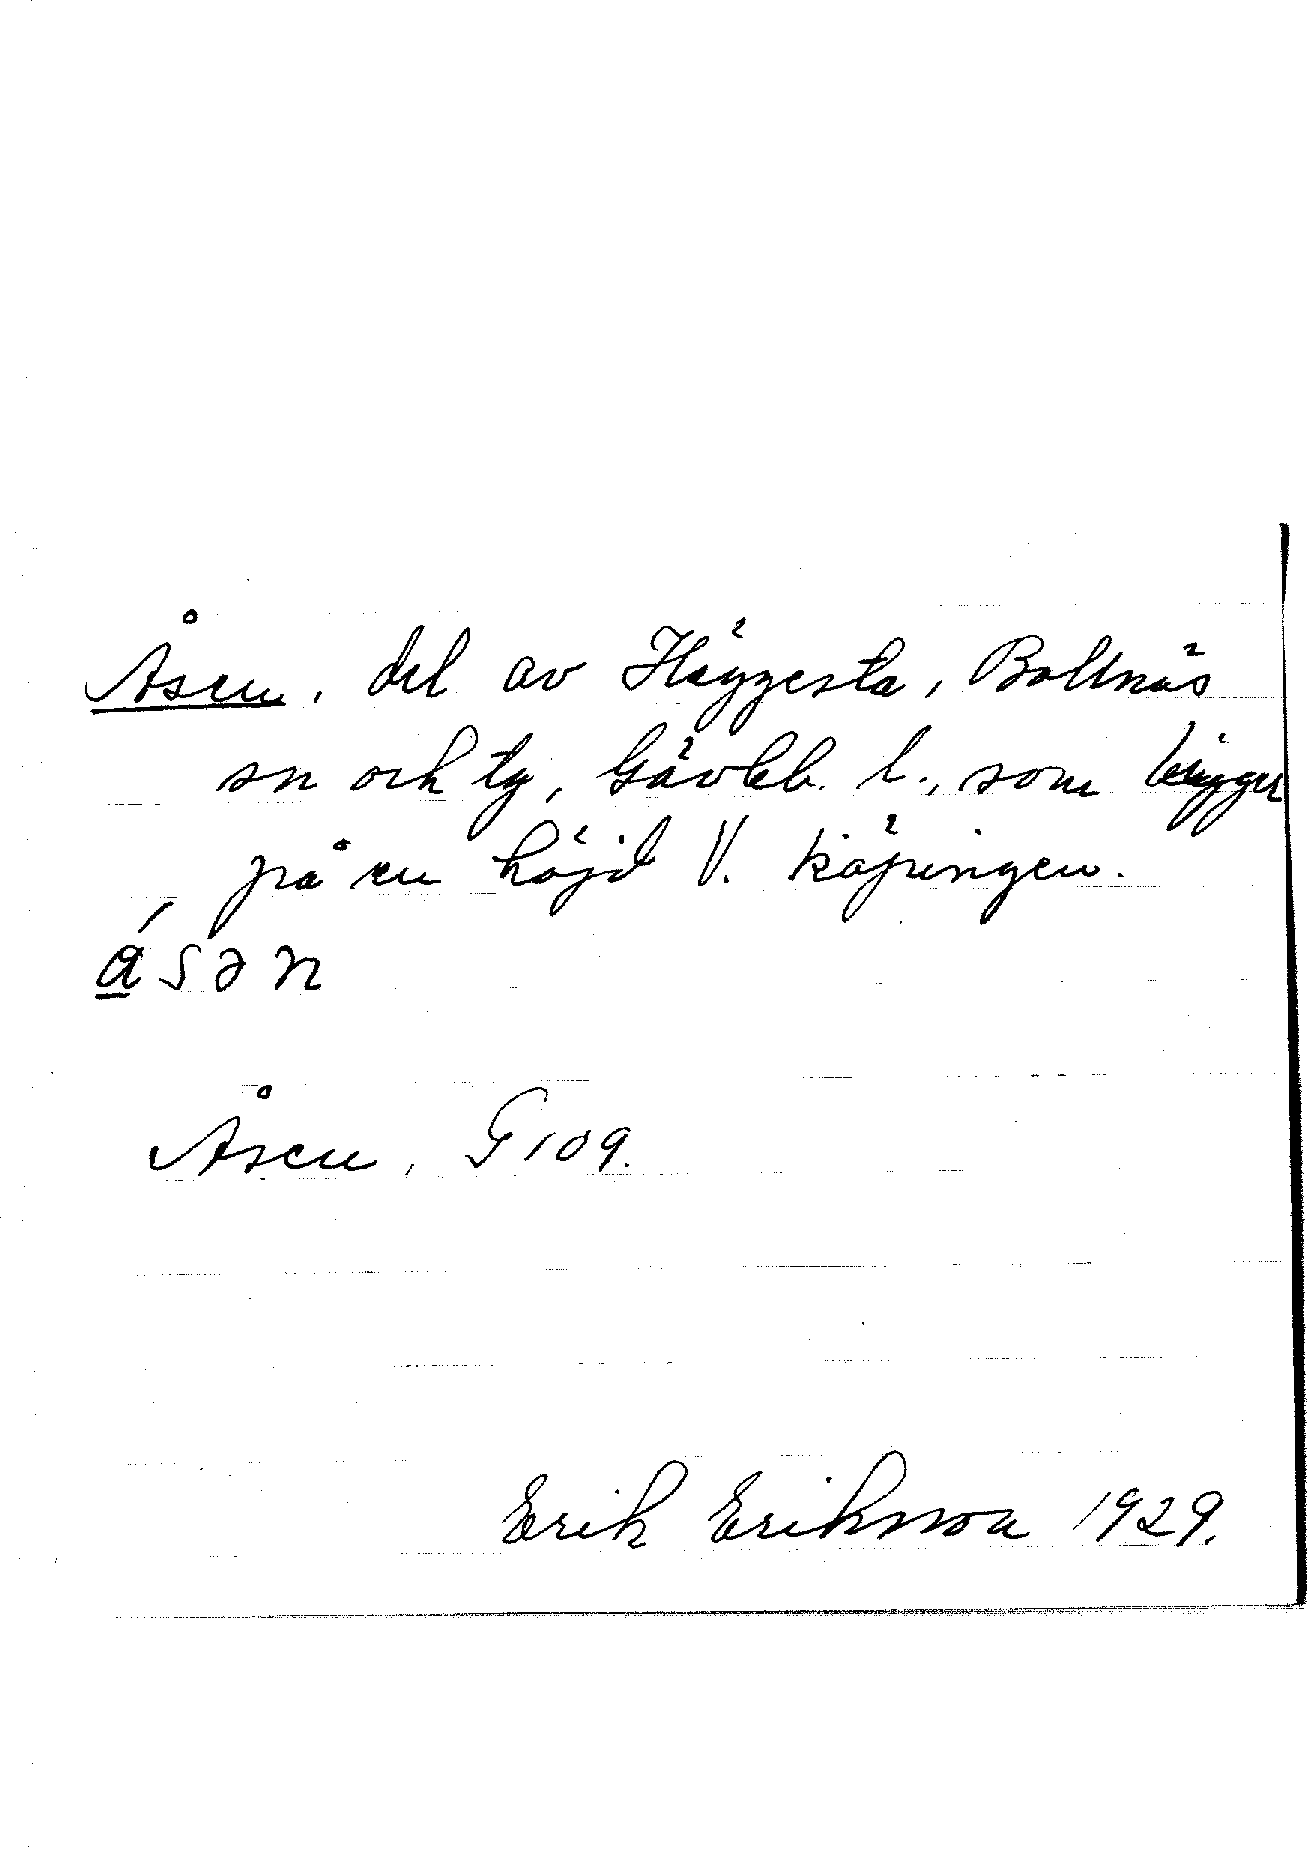 Åsen, del av Häggesta, Bollnäs
sn och tg, Gävleb. l., som ligger
på en höjd V. köpingen.
á̲sən
Åsen, G 109.
Erik Eriksson 1929.